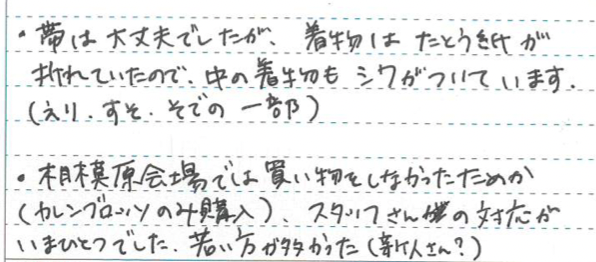 ・帯は大丈夫でしたが、着物はたとう紙が
折れていたので、中の着物もシワがついています。
(えり、すそ、そでの一部)
・相模原会場では買い物をしなかったためか
(カレンブロッソのみ購入)、スタッフさん達の対応が
いまひとつでした。若い方が多かった(新人さん?)